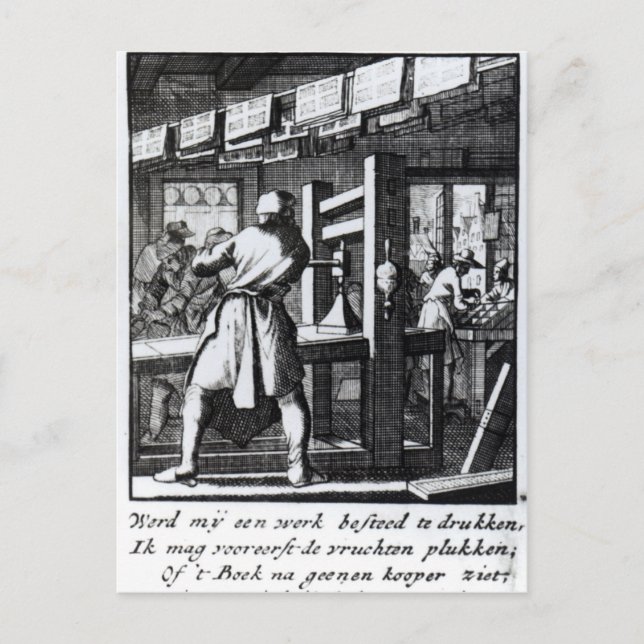 Werd mÿ een werk besteed te drukken,
Ik mag vooreerst de vruchten plukken;
Of 't Boek na geenen kooper ziet,